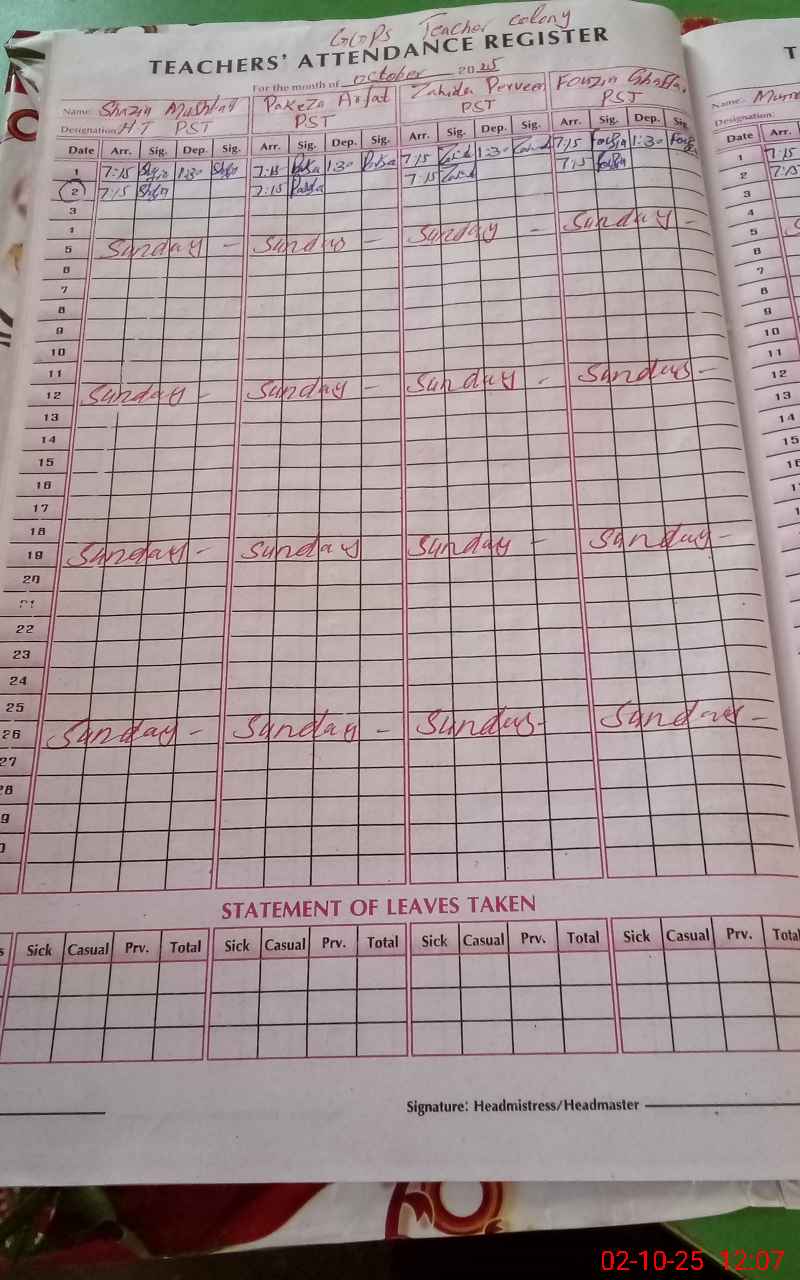 GGPS Teacher colony
TEACHERS' ATTENDANCE REGISTER
For the month of October 2025
Name: Shazia Mushtaq Pakeza Arfat Zahida Perveen Fouzia Ghaffar
Designation: HT PST PST PST PST
Date Arr. Sig. Dep. Sig. Arr. Sig. Dep. Sig. Arr. Sig. Dep. Sig. Arr. Sig. Dep. Sig.
1 7:15 1:30 7:15 1:30 7:15 1:30 7:15 Fouzia 1:30
2 7:15 7:15 7:15 7:15 Fouzia
3
4
5 Sunday - Sunday - Sunday - Sunday -
6
7
8
9
10
11
12 Sunday - Sunday - Sunday - Sunday -
13
14
15
16
17
18
19 Sunday - Sunday Sunday - Sunday -
20
21
22
23
24
25
26 Sunday - Sunday - Sunday - Sunday -
27
28
9
STATEMENT OF LEAVES TAKEN
Sick Casual Prv. Total Sick Casual Prv. Total Sick Casual Prv. Total Sick Casual Prv. Total
Signature: Headmistress/Headmaster
T
Name:
Designation:
Date Arr.
1 7:15
2 7:15
3
4
5
6
7
8
9
10
11
12
13
14
15
02-10-25 12:07